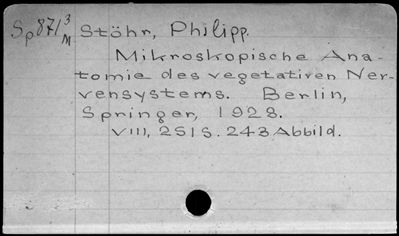 Sp 871 3/M Stöhr, Philipp.
Mikroskopische Ana-
tomie des vegetativen Ner-
vensystems. Berlin,
Springer, 1928.
VIII, 251 S. 243 Abbild.